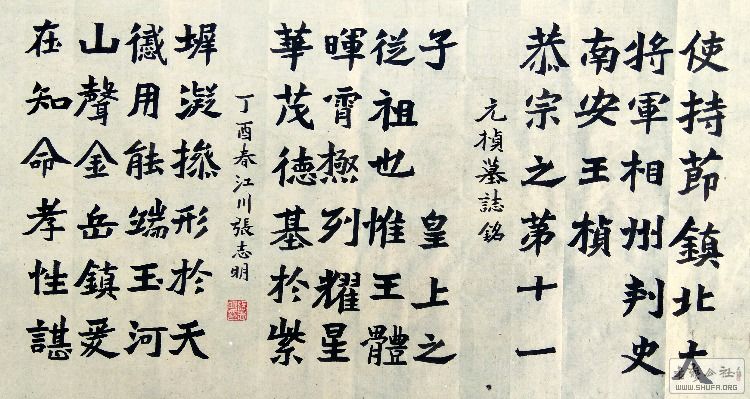 使持節鎮北大
將軍相州刺史
南安王楨
恭宗之第十一
元楨墓誌銘
子 皇上之
從祖也惟王體
暉霄極列耀星
華茂德基於紫
丁酉春江川張志明
墀凝操形於天
感用能端玉河
山聲金岳鎮爰
在知命孝性諶
WWW.SHUFA.ORG